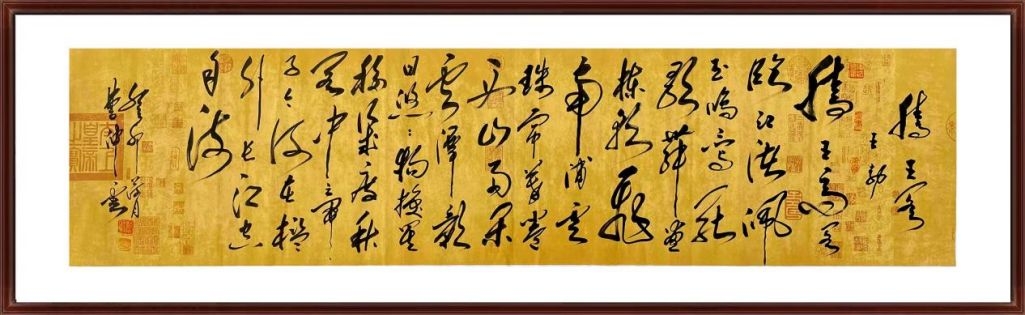 滕王阁
王勃
滕王高阁
临江渚佩
玉鸣鸾罢
歌舞画
栋朝飞
南浦云
珠帘暮卷
西山雨闲
云潭影
日悠々物换星
移几度秋
阁中帝
子今何在槛
外长江空
自流
癸卯